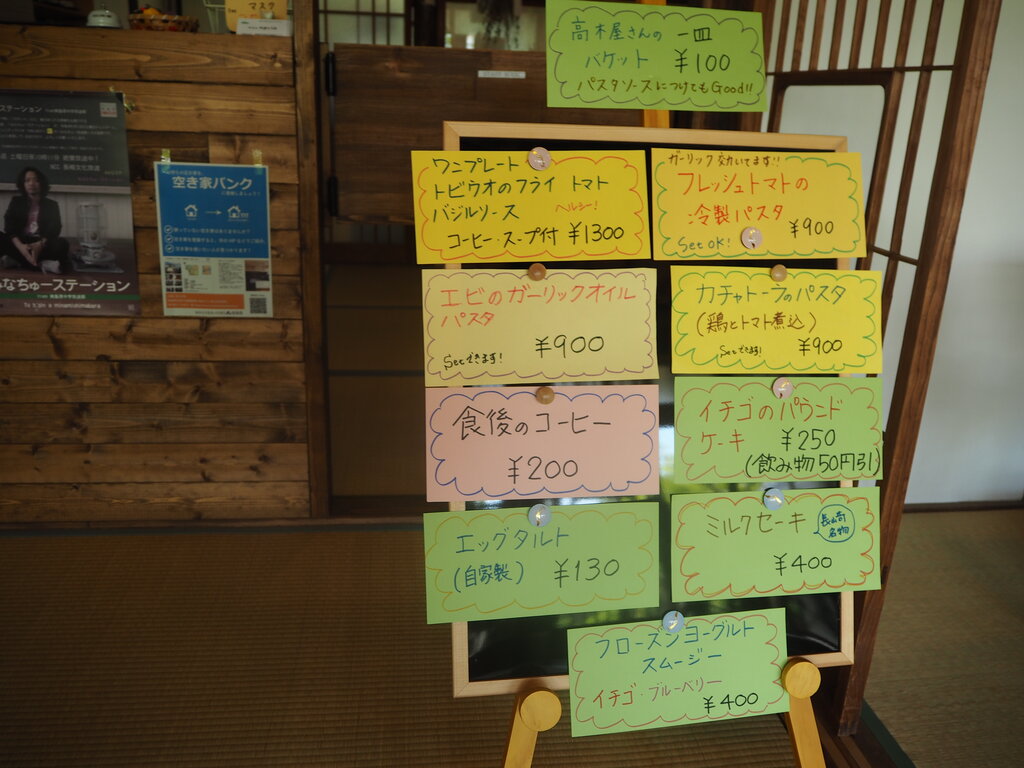 マスク
高木屋さんの 一皿
バケット ¥100
パスタソースにつけてもGood!!
ワンプレート
トビウオのフライ トマト
バジルソース ヘルシー!
コーヒー・スープ付 ¥1300
ガーリック効いてます!!
フレッシュトマトの
冷製パスタ
Set OK! ¥900
エビのガーリックオイル
パスタ
Setできます! ¥900
カチャトーラのパスタ
(鶏とトマト煮込)
Setできます! ¥900
食後のコーヒー
¥200
イチゴのパウンド
ケーキ ¥250
(飲み物50円引)
エッグタルト
(自家製) ¥130
ミルクセーキ 長崎名物
¥400
フローズンヨーグルト
スムージー
イチゴ・ブルーベリー
¥400
空き家バンク
ステーション
みなちゅーステーション